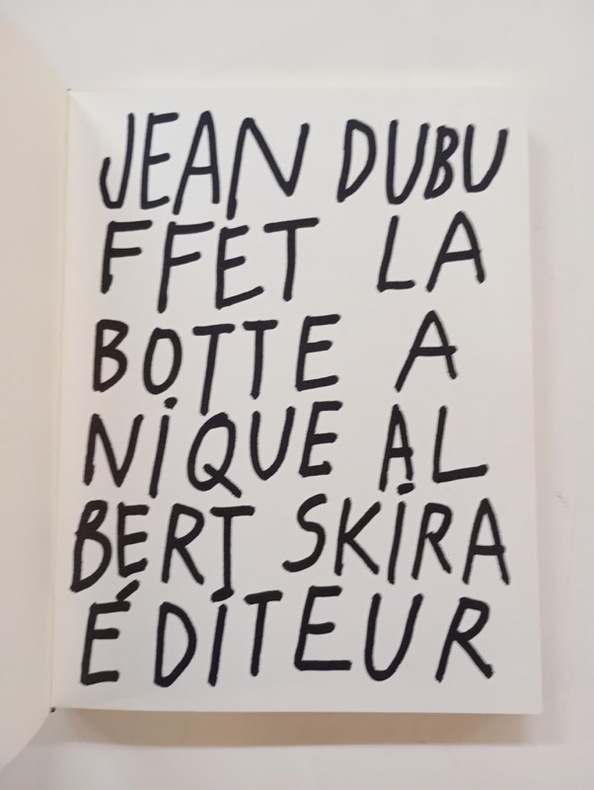 JEAN DUBU
FFET LA
BOTTE A
NiQUE AL
BERT SKiRA
ÉDiTEUR